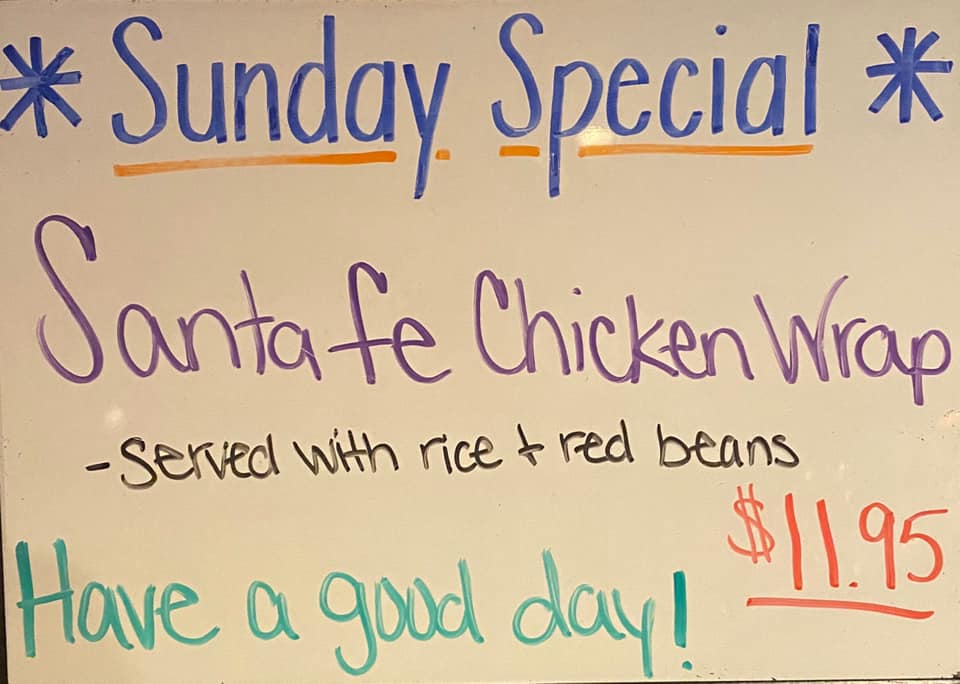 * Sunday Special *
Santa fe Chicken Wrap
-Served with rice + red beans
$11.95
Have a good day!